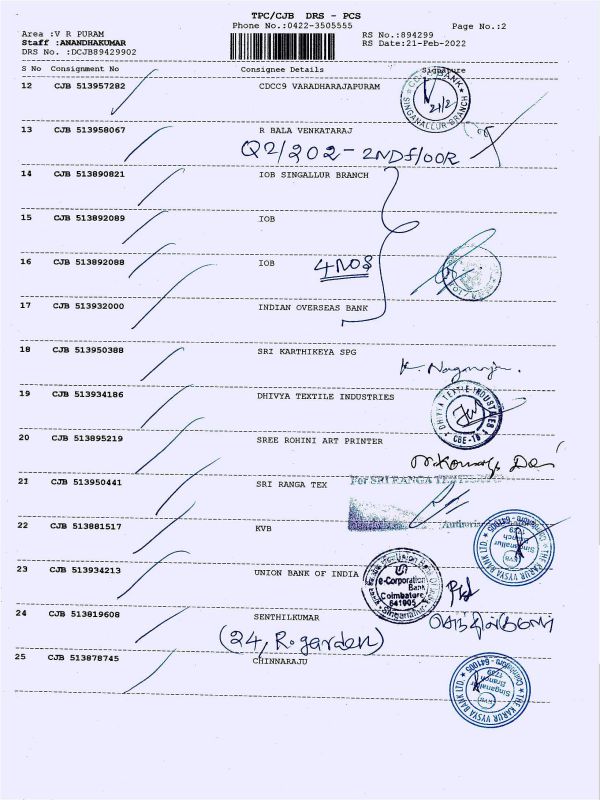 TPC/CJB DRS - PCS
Phone No.:0422-3505555
Page No.:2
Area :V R PURAM
RS No.:894299
Staff :ANANDHAKUMAR
RS Date:21-Feb-2022
DRS No. :DCJB89429902
S No Consignment No Consignee Details Signature
12 CJB 513957282 CDCC9 VARADHARAJAPURAM
SINGANALLUR BRANCH
21/2
13 CJB 513958067 R BALA VENKATARAJ
Q2/202 - 2ND floor
14 CJB 513890821 IOB SINGALLUR BRANCH
15 CJB 513892089 IOB
16 CJB 513892088 IOB
4 NOS
17 CJB 513932000 INDIAN OVERSEAS BANK
18 CJB 513950388 SRI KARTHIKEYA SPG
19 CJB 513934186 DHIVYA TEXTILE INDUSTRIES
DHIVYA TEXTILE INDUSTRIES
CBE-15
20 CJB 513895219 SREE ROHINI ART PRINTER
21 CJB 513950441 SRI RANGA TEX
For SRI RANGA
22 CJB 513881517 KVB
THE KARUR VYSYA BANK LTD.
Singanallur
Branch
1759
Coimbatore - 641005
23 CJB 513934213 UNION BANK OF INDIA
Union Bank
e-Corporation
Bank
Coimbatore
641005
Singanallur
24 CJB 513819608 SENTHILKUMAR
(24, R.garden)
25 CJB 513878745 CHINNARAJU
THE KARUR VYSYA BANK LTD.
Singanallur
Branch
1759
Coimbatore - 641005